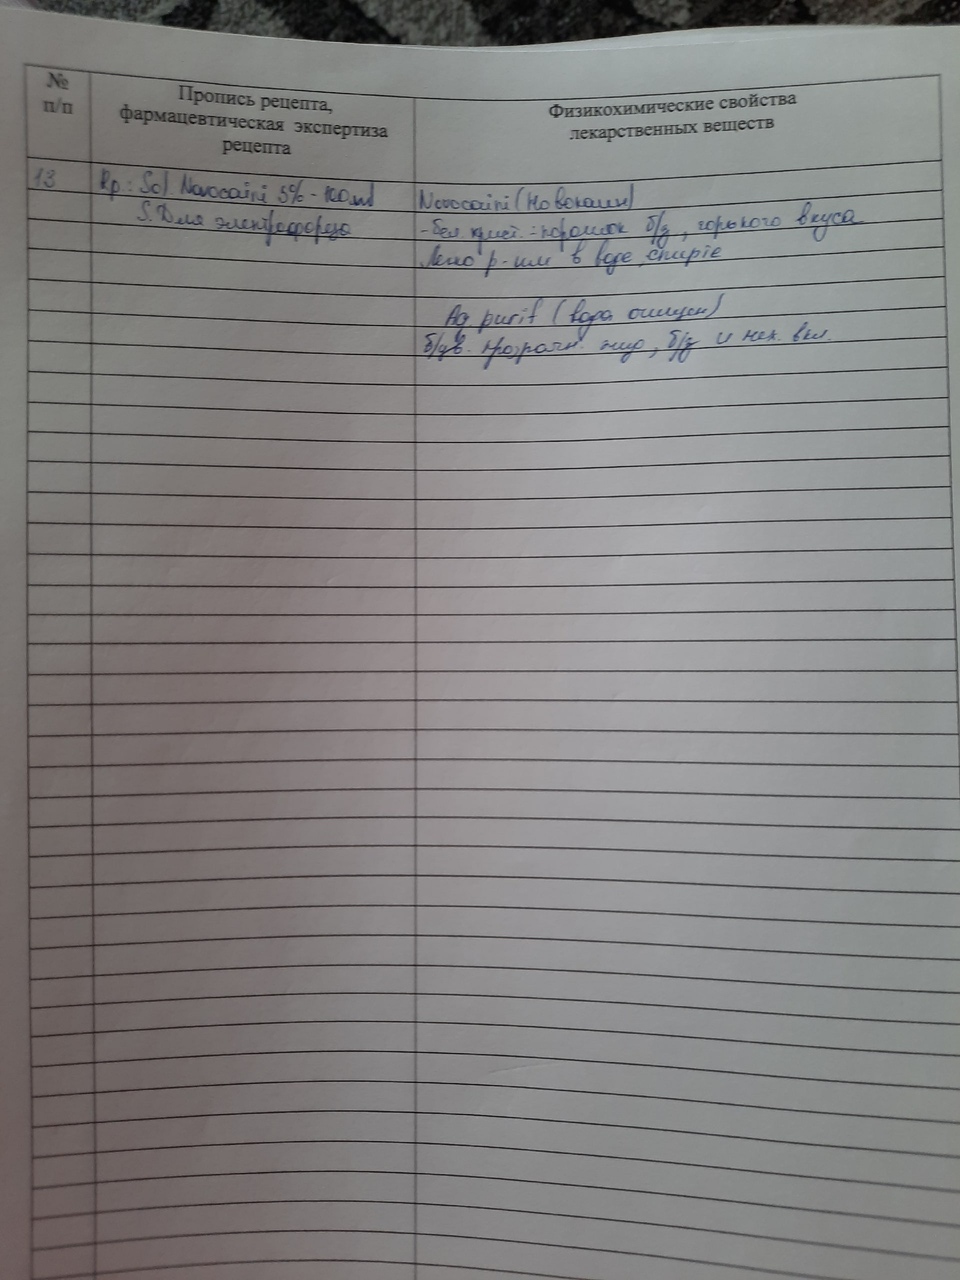 №
п/п
Пропись рецепта,
фармацевтическая экспертиза
рецепта
Физикохимические свойства
лекарственных веществ
13
Rp: Sol Novocaini 5% - 100ml
S. Для электрофореза
Novocaini (Новокаин)
- бел. крист. порошок б/з, горького вкуса
Легко р-им в воде, спирте
Aq purif (вода очищен)
б/цв. прозрачн. жид, б/з и вкл.